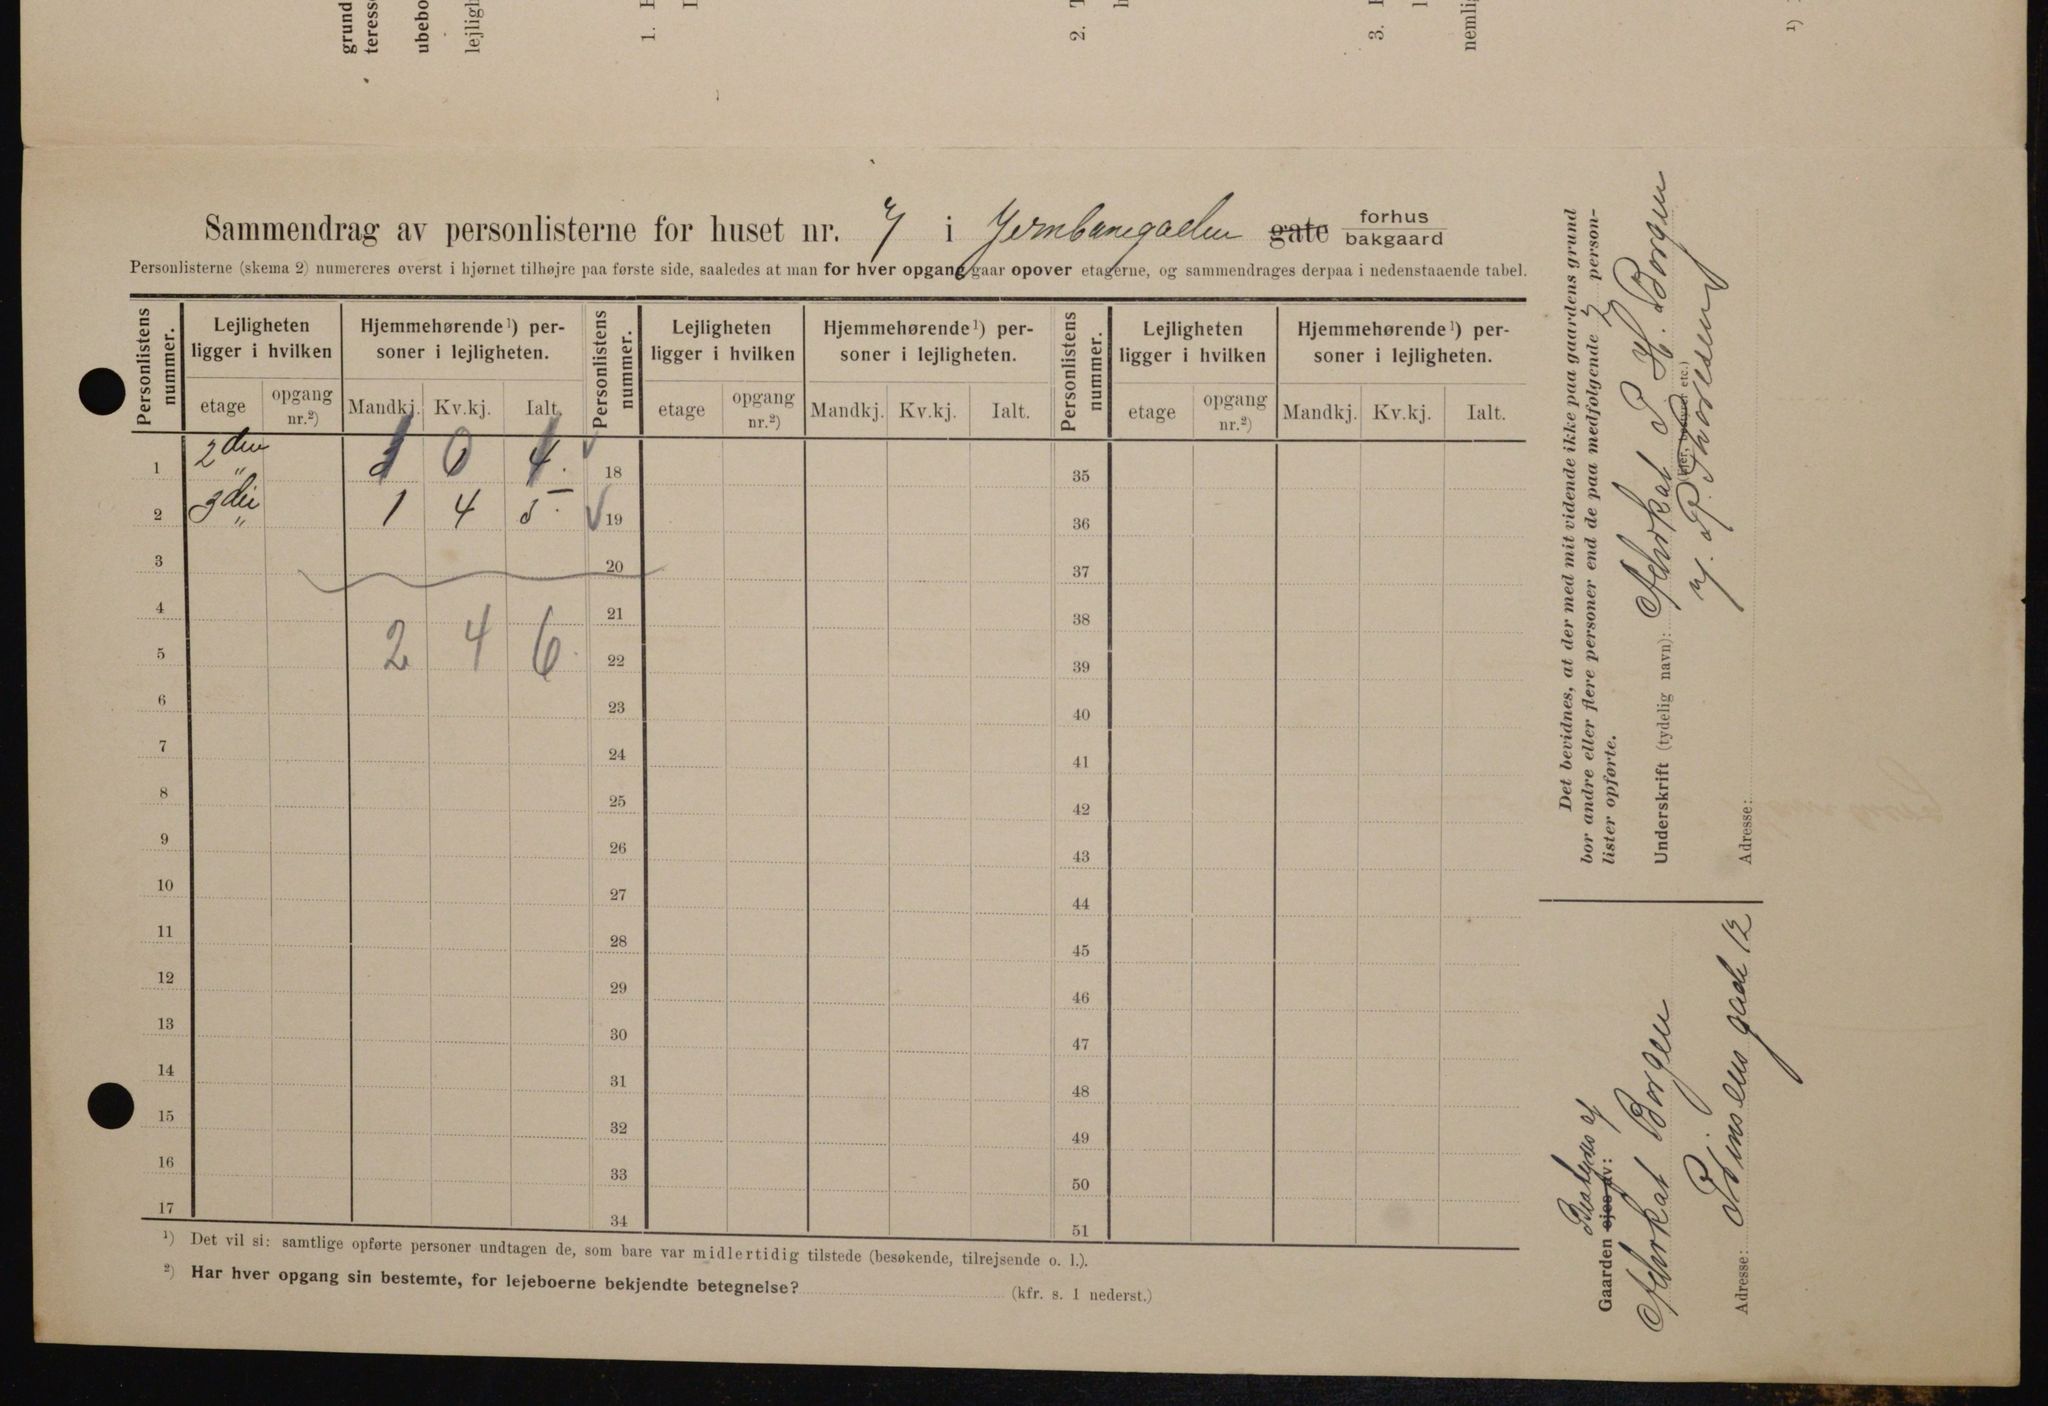 grund
teresse
ubebo
lejligh
1.
2.
3.
nemlig
1)
Sammendrag av personlisterne for huset nr. 7 i Jernbanegaden gate forhus bakgaard
Personlisterne (skema 2) numereres øverst i hjørnet tilhøjre paa første side, saaledes at man for hver opgang gaar opover etagerne, og sammendrages derpaa i nedenstaaende tabel.
Personlistens nummer. Lejligheten ligger i hvilken Hjemmehørende 1) personer i lejligheten. Personlistens nummer. Lejligheten ligger i hvilken Hjemmehørende 1) personer i lejligheten. Personlistens nummer. Lejligheten ligger i hvilken Hjemmehørende 1) personer i lejligheten.
etage opgang nr.2) Mandkj. Kv.kj. Ialt. etage opgang nr.2) Mandkj. Kv.kj. Ialt. etage opgang nr.2) Mandkj. Kv.kj. Ialt.
1 2den 1 0 1 18 35
2 3die 1 4 5 19 36
3 20 37
4 21 38
5 2 4 6 22 39
6 23 40
7 24 41
8 25 42
9 26 43
10 27 44
11 28 45
12 29 46
13 30 47
14 31 48
15 32 49
16 33 50
17 34 51
1) Det vil si: samtlige opførte personer undtagen de, som bare var midlertidig tilstede (besøkende, tilrejsende o. l.).
2) Har hver opgang sin bestemte, for lejeboerne bekjendte betegnelse? (kfr. s. 1 nederst.)
Det bevidnes, at der med mit vidende ikke paa gaardens grund
bor andre eller flere personer end de paa medfølgende 2 person-
lister opførte.
Underskrift (tydelig navn): Advokat P. H. Borgen
etc.)
Thoresen
Adresse:
Bestyres af
Gaarden ejes av:
Advokat Borgen
Adresse: Prinsens gade 12